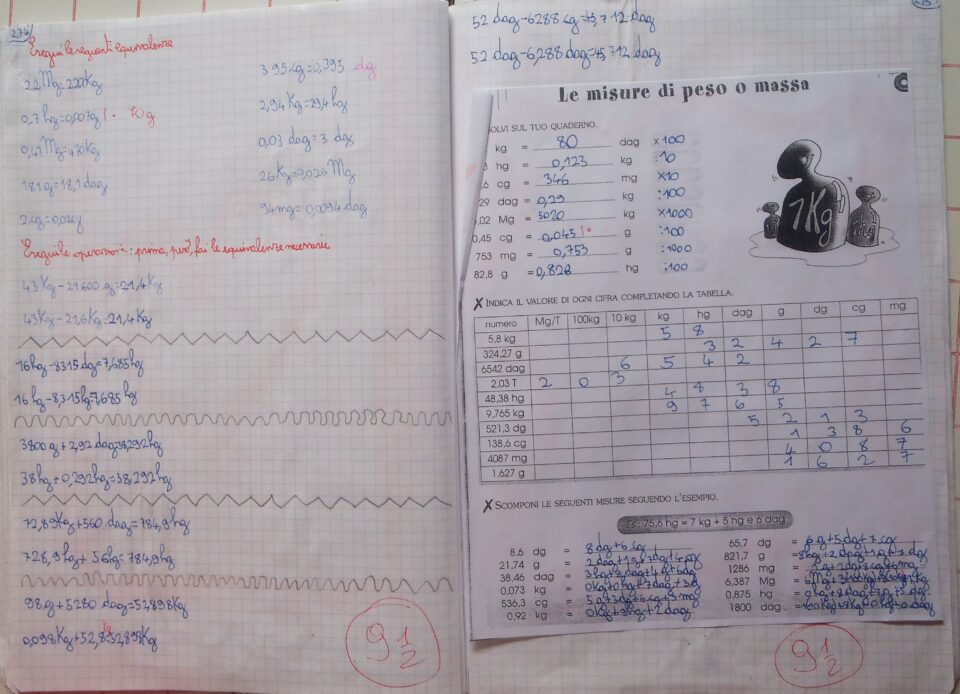 274
Esegui le seguenti equivalenze
22Mg=220Kg
0,7hg=0,007g 10g
0,47Mg=470Kg
181g=18,1dag
2cg=0,02g
395cg=0,395 dg
2,94Kg=29,4hg
0,03dag=3dg
26Kg=0,026Mg
94mg=0,0094dag
Esegui le operazioni: prima, però, fai le equivalenze necessarie
43Kg-21600g=21,4Kg
43Kg-21,6Kg=21,4Kg
16hg-8315dg=7,685hg
16hg-8,315hg=7,685hg
3800g+2,92dag=38,292hg
38hg+0,292hg=38,292hg
72,89Kg+560dag=784,9hg
728,9hg+56hg=784,9hg
98g+5280dag=52,898Kg
0,098Kg+52,8=52,898Kg
9 1/2
275
52dag-6288cg=45,712dag
52dag-6,288dag=45,712dag
Le misure di peso o massa
SOLVI SUL TUO QUADERNO.
kg = 80 dag x100
hg = 0,123 kg :10
,6 cg = 346 mg x10
29 dag = 0,29 kg :100
,02 Mg = 5020 kg x1000
0,45 cg = 0,045 g :100
753 mg = 0,753 g :1000
82,8 g = 0,828 hg :100
7Kg
X INDICA IL VALORE DI OGNI CIFRA COMPLETANDO LA TABELLA.
numero Mg/T 100kg 10 kg kg hg dag g dg cg mg
5,8 kg 5 8
324,27 g 3 2 4 2 7
6542 dag 6 5 4 2
2,03 T 2 0 3
48,38 hg 4 8 3 8
9,765 kg 9 7 6 5
521,3 dg 5 2 1 3
138,6 cg 1 3 8 6
4087 mg 4 0 8 7
1,627 g 1 6 2 7
X SCOMPONI LE SEGUENTI MISURE SEGUENDO L'ESEMPIO.
Es.: 75,6 hg = 7 kg + 5 hg e 6 dag
8,6 dg = 8dg+6cg
21,74 g = 2dag+1g+7dg+4cg
38,46 dag = 3hg+8dag+4g+6dg
0,073 kg = 0kg+0hg+7dag+3g
536,3 cg = 5g+3dg+6cg+3mg
0,92 kg = 0kg+9hg+2dag
65,7 dg = 6g+5dg+7cg
821,7 g = 8hg+2dag+1g+7dg
1286 mg = 1g+2dg+8cg+6mg
6,387 Mg =
0,875 hg = 0hg+8dag+7g+5dg
1800 dag =
9 1/2